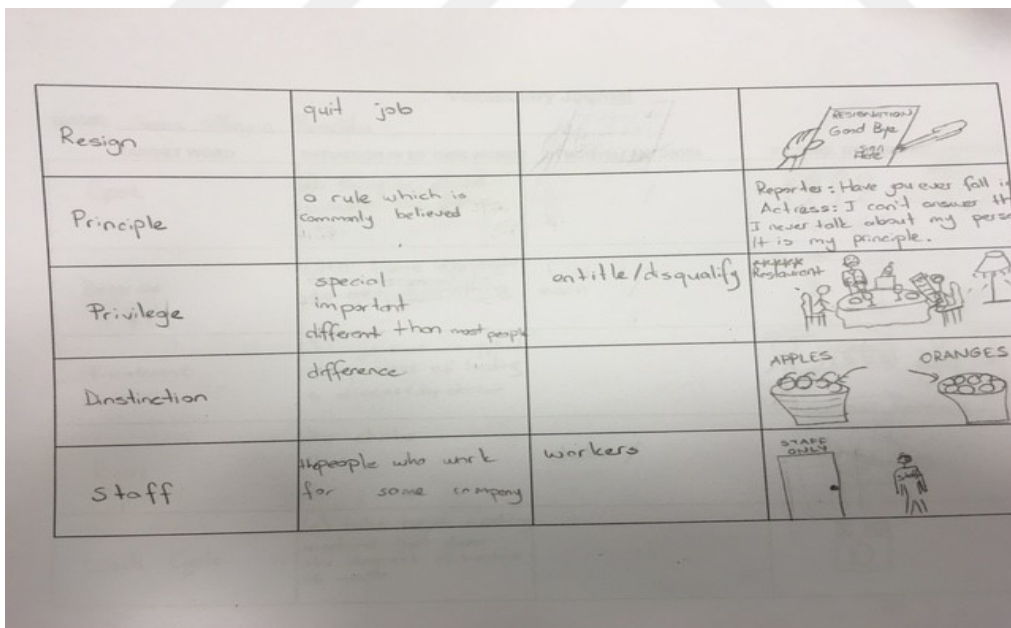 Resign
quit job
RESIGNATION
Good Bye
sign
Here
Principle
a rule which is
commonly believed
Reporter: Have you ever fall
Actress: I can't answer
I never talk about my
It is my principle.
Privilege
special
important
different than most people
entitle/disqualify
Restaurant
Dinstinction
difference
APPLES
ORANGES
Staff
thepeople who work
for some company
workers
STAFF
ONLY